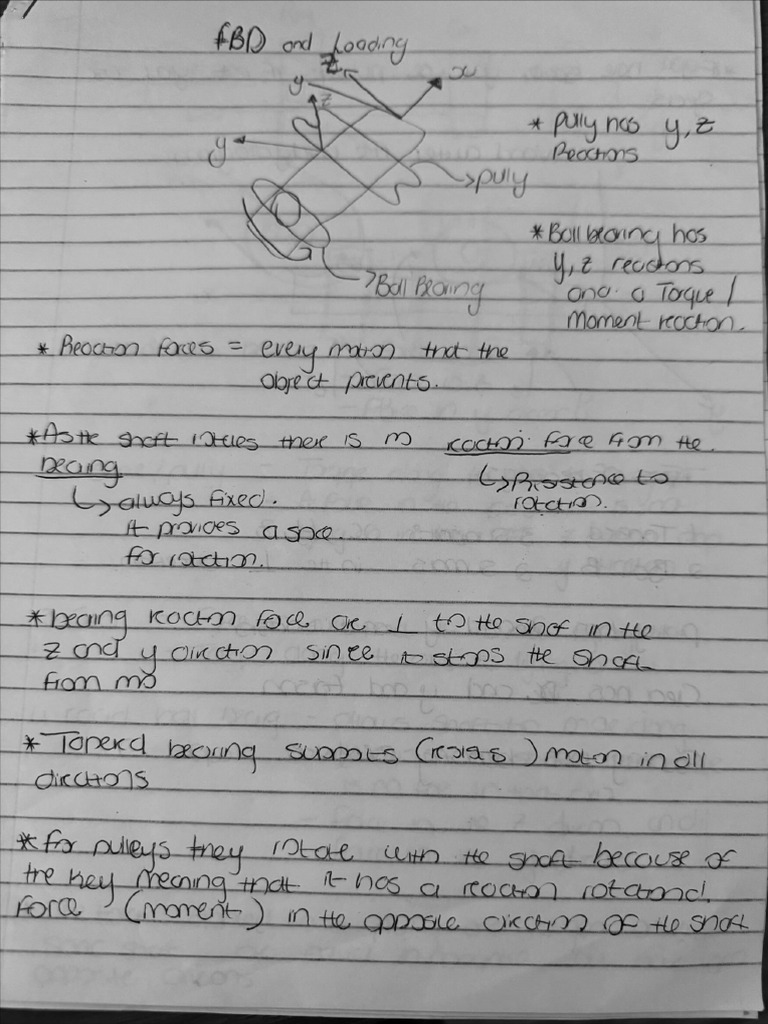 FBD and Loading
z
x
y
z
y
* Pully has y, z
Reactions
pully
* Ball bearing has
y, z reactions
and a Torque /
Moment reaction.
Ball Bearing
* Reaction forces = every motion that the
object prevents.
* As the shaft rotates there is no reaction force from the
bearing
↳ Resistance to
rotation.
↳ always fixed.
it provides a space
for rotation.
* bearing reaction force are ⊥ to the shaft in the
z and y direction since it stops the shaft
from
* Taperd bearing supports (resists) motion in all
directions
* for pulleys they rotate with the shaft because of
the key meaning that it has a reaction rotational
force (moment) in the opposite direction of the shaft